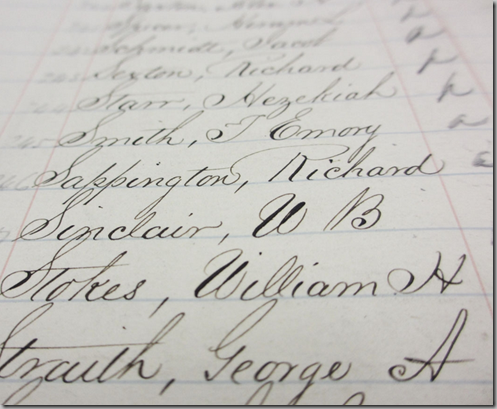 Schmidt, Jacob
Sexton, Richard
Starr, Hezekiah
Smith, T Emory
Sappington, Richard
Sinclair, W B
Stokes, William H
Straith, George A